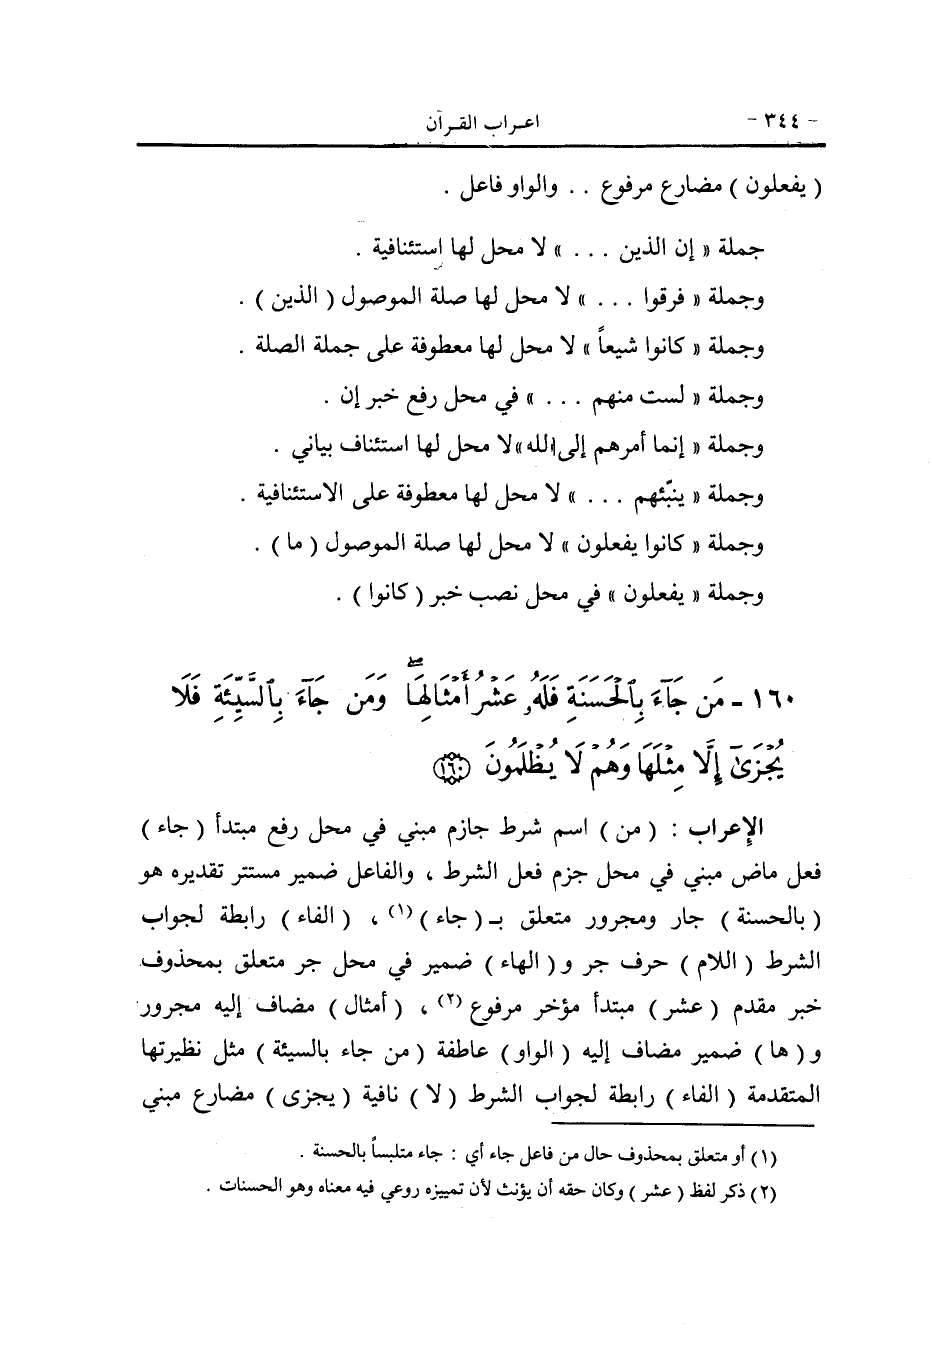 - ٣٤٤ - اعـراب القـرآن
( يفعلون ) مضارع مرفوع . . والواو فاعل .
جملة « إن الذين . . . » لا محل لها استئنافية .
وجملة « فرقوا . . . » لا محل لها صلة الموصول ( الذين ) .
وجملة « كانوا شيعاً » لا محل لها معطوفة على جملة الصلة .
وجملة « لست منهم . . . » في محل رفع خبر إن .
وجملة « إنما أمرهم إلى الله » لا محل لها استئناف بياني .
وجملة « ينبّئهم . . . » لا محل لها معطوفة على الاستئنافية .
وجملة « كانوا يفعلون » لا محل لها صلة الموصول ( ما ) .
وجملة « يفعلون » في محل نصب خبر ( كانوا ) .
١٦٠ - مَن جَآءَ بِٱلْحَسَنَةِ فَلَهُۥ عَشْرُ أَمْثَالِهَاۖ وَمَن جَآءَ بِٱلسَّيِّئَةِ فَلَا
يُجْزَىٰٓ إِلَّا مِثْلَهَا وَهُمْ لَا يُظْلَمُونَ ﴿١٦٠﴾
الإعراب : ( من ) اسم شرط جازم مبني في محل رفع مبتدأ ( جاء )
فعل ماض مبني في محل جزم فعل الشرط ، والفاعل ضمير مستتر تقديره هو
( بالحسنة ) جار ومجرور متعلق بـ ( جاء )(١) ، ( الفاء ) رابطة لجواب
الشرط ( اللام ) حرف جر و ( الهاء ) ضمير في محل جر متعلق بمحذوف
خبر مقدم ( عشر ) مبتدأ مؤخر مرفوع(٢) ، ( أمثال ) مضاف إليه مجرور
و ( ها ) ضمير مضاف إليه ( الواو ) عاطفة ( من جاء بالسيئة ) مثل نظيرتها
المتقدمة ( الفاء ) رابطة لجواب الشرط ( لا ) نافية ( يجزى ) مضارع مبني
(١) أو متعلق بمحذوف حال من فاعل جاء أي : جاء متلبساً بالحسنة .
(٢) ذكر لفظ ( عشر ) وكان حقه أن يؤنث لأن تمييزه روعي فيه معناه وهو الحسنات .